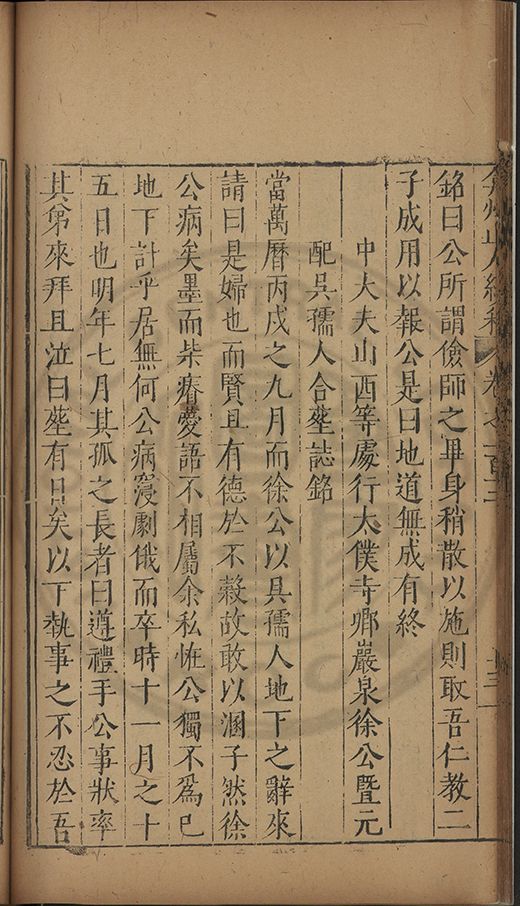 弇州山人續稿 卷之一百三 十三
銘曰公所謂儉師之畢身稍散以施則取吾仁教二
子成用以報公是曰地道無成有終
中大夫山西等處行太僕寺卿巖泉徐公暨元
配吳孺人合塟誌銘
當萬曆丙戌之九月而徐公以具孺人地下之辭來
請曰是婦也而賢且有德於不穀故敢以溷子然徐
公病矣墨而柴瘠憂語不相屬余私恠公獨不爲已
地下計乎居無何公病寖劇俄而卒時十一月之十
五日也明年七月其孤之長者曰遵禮手公事狀率
其弟來拜且泣曰塟有日矣以下執事之不忍於吾